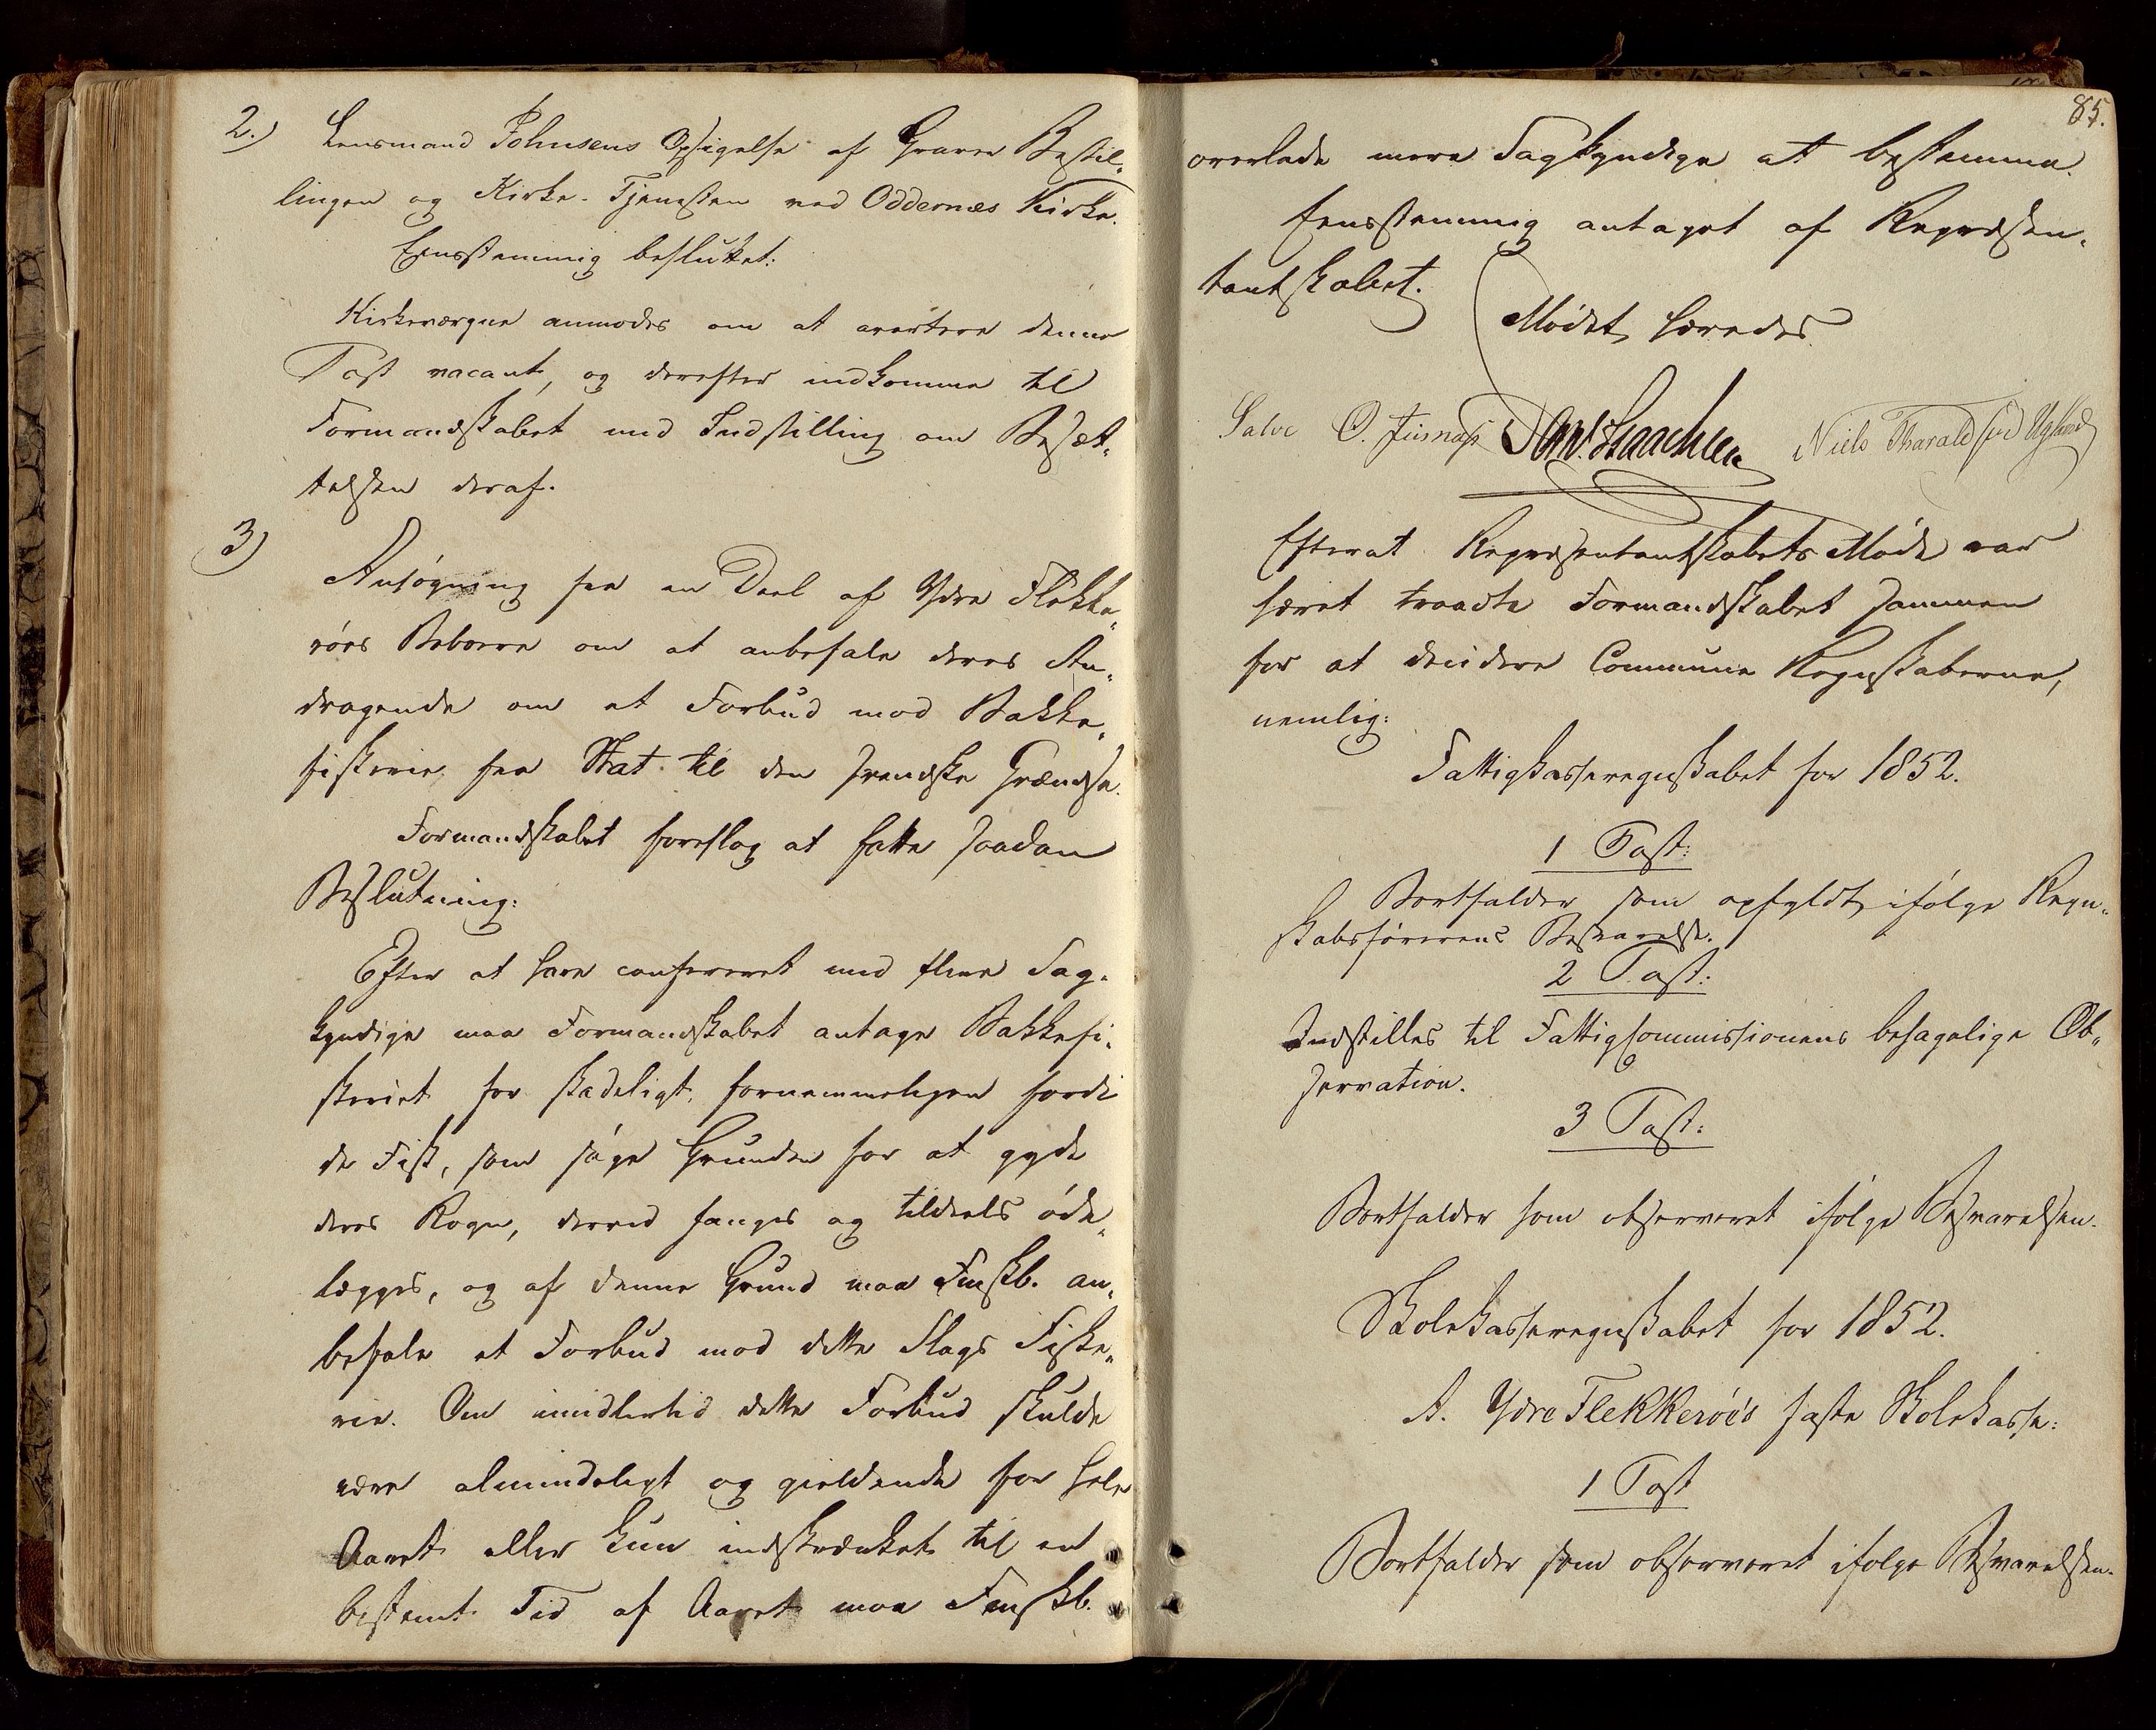 2.) Lensmand Johnsens Opsigelse af Graver Bestil-
lingen og Kirke-Tjenesten ved Oddernæs Kirke.
Eensstemmig besluttet:
Kirkeværgen anmodes om at avertere denne
Post vacant, og derefter indkomme til
Formandskabet med Indstilling om Besæt-
telsen deraf.
3) Ansøgning fra en Deel af Ydre Flekke-
røes Beboere om at anbefale deres An-
dragende om et Forbud mod Bakke-
fiskerie fra Stat til den svendske Grændse.
Formandskabet foreslog at fatte saadan
Beslutning:
Efter at have confereret med flere Sag-
kyndige maa Formandskabet antage Bakkefi-
skeriet for skadeligt, fornemmeligen fordi
de Fisk, som søge Grunden for at gyde
deres Rogn, derved fanges og tildeels øde-
lægges, og af denne Grund maa Fmskb. an-
befale et Forbud mod dette Slags Fiske-
rie. Om imidlertid dette Forbud skulde
være almindeligt og gieldende for hele
Aaret eller kun indskrænket til en
bestemt Tid af Aaret maa Fmskb.
85.
overlade mere Sagkyndige at bestemme.
Eensstemmig antaget af Repræsen-
tantskabet.
Mødet hævedes
Salve O. Niels Tharaldsen Ugland
Efterat Repræsentantskabets Møde var
hævet traadte Formandskabet sammen
for at decidere Commune Regnskaberne,
nemlig:
Fattigkasseregnskabet for 1852.
1 Post:
Bortfalder som opfyldt ifølge Regn-
skabsførerens Besvarelse.
2 Post:
Indstilles til Fattigcommissionens behagelige Ob-
servation.
3 Post:
Bortfalder som observeret ifølge Besvarelsen.
Skolekasseregnskabet for 1852.
A. Ydre Flekkerøes faste Skolekasse:
1 Post
Bortfalder som observeret ifølge Besvarelsen.